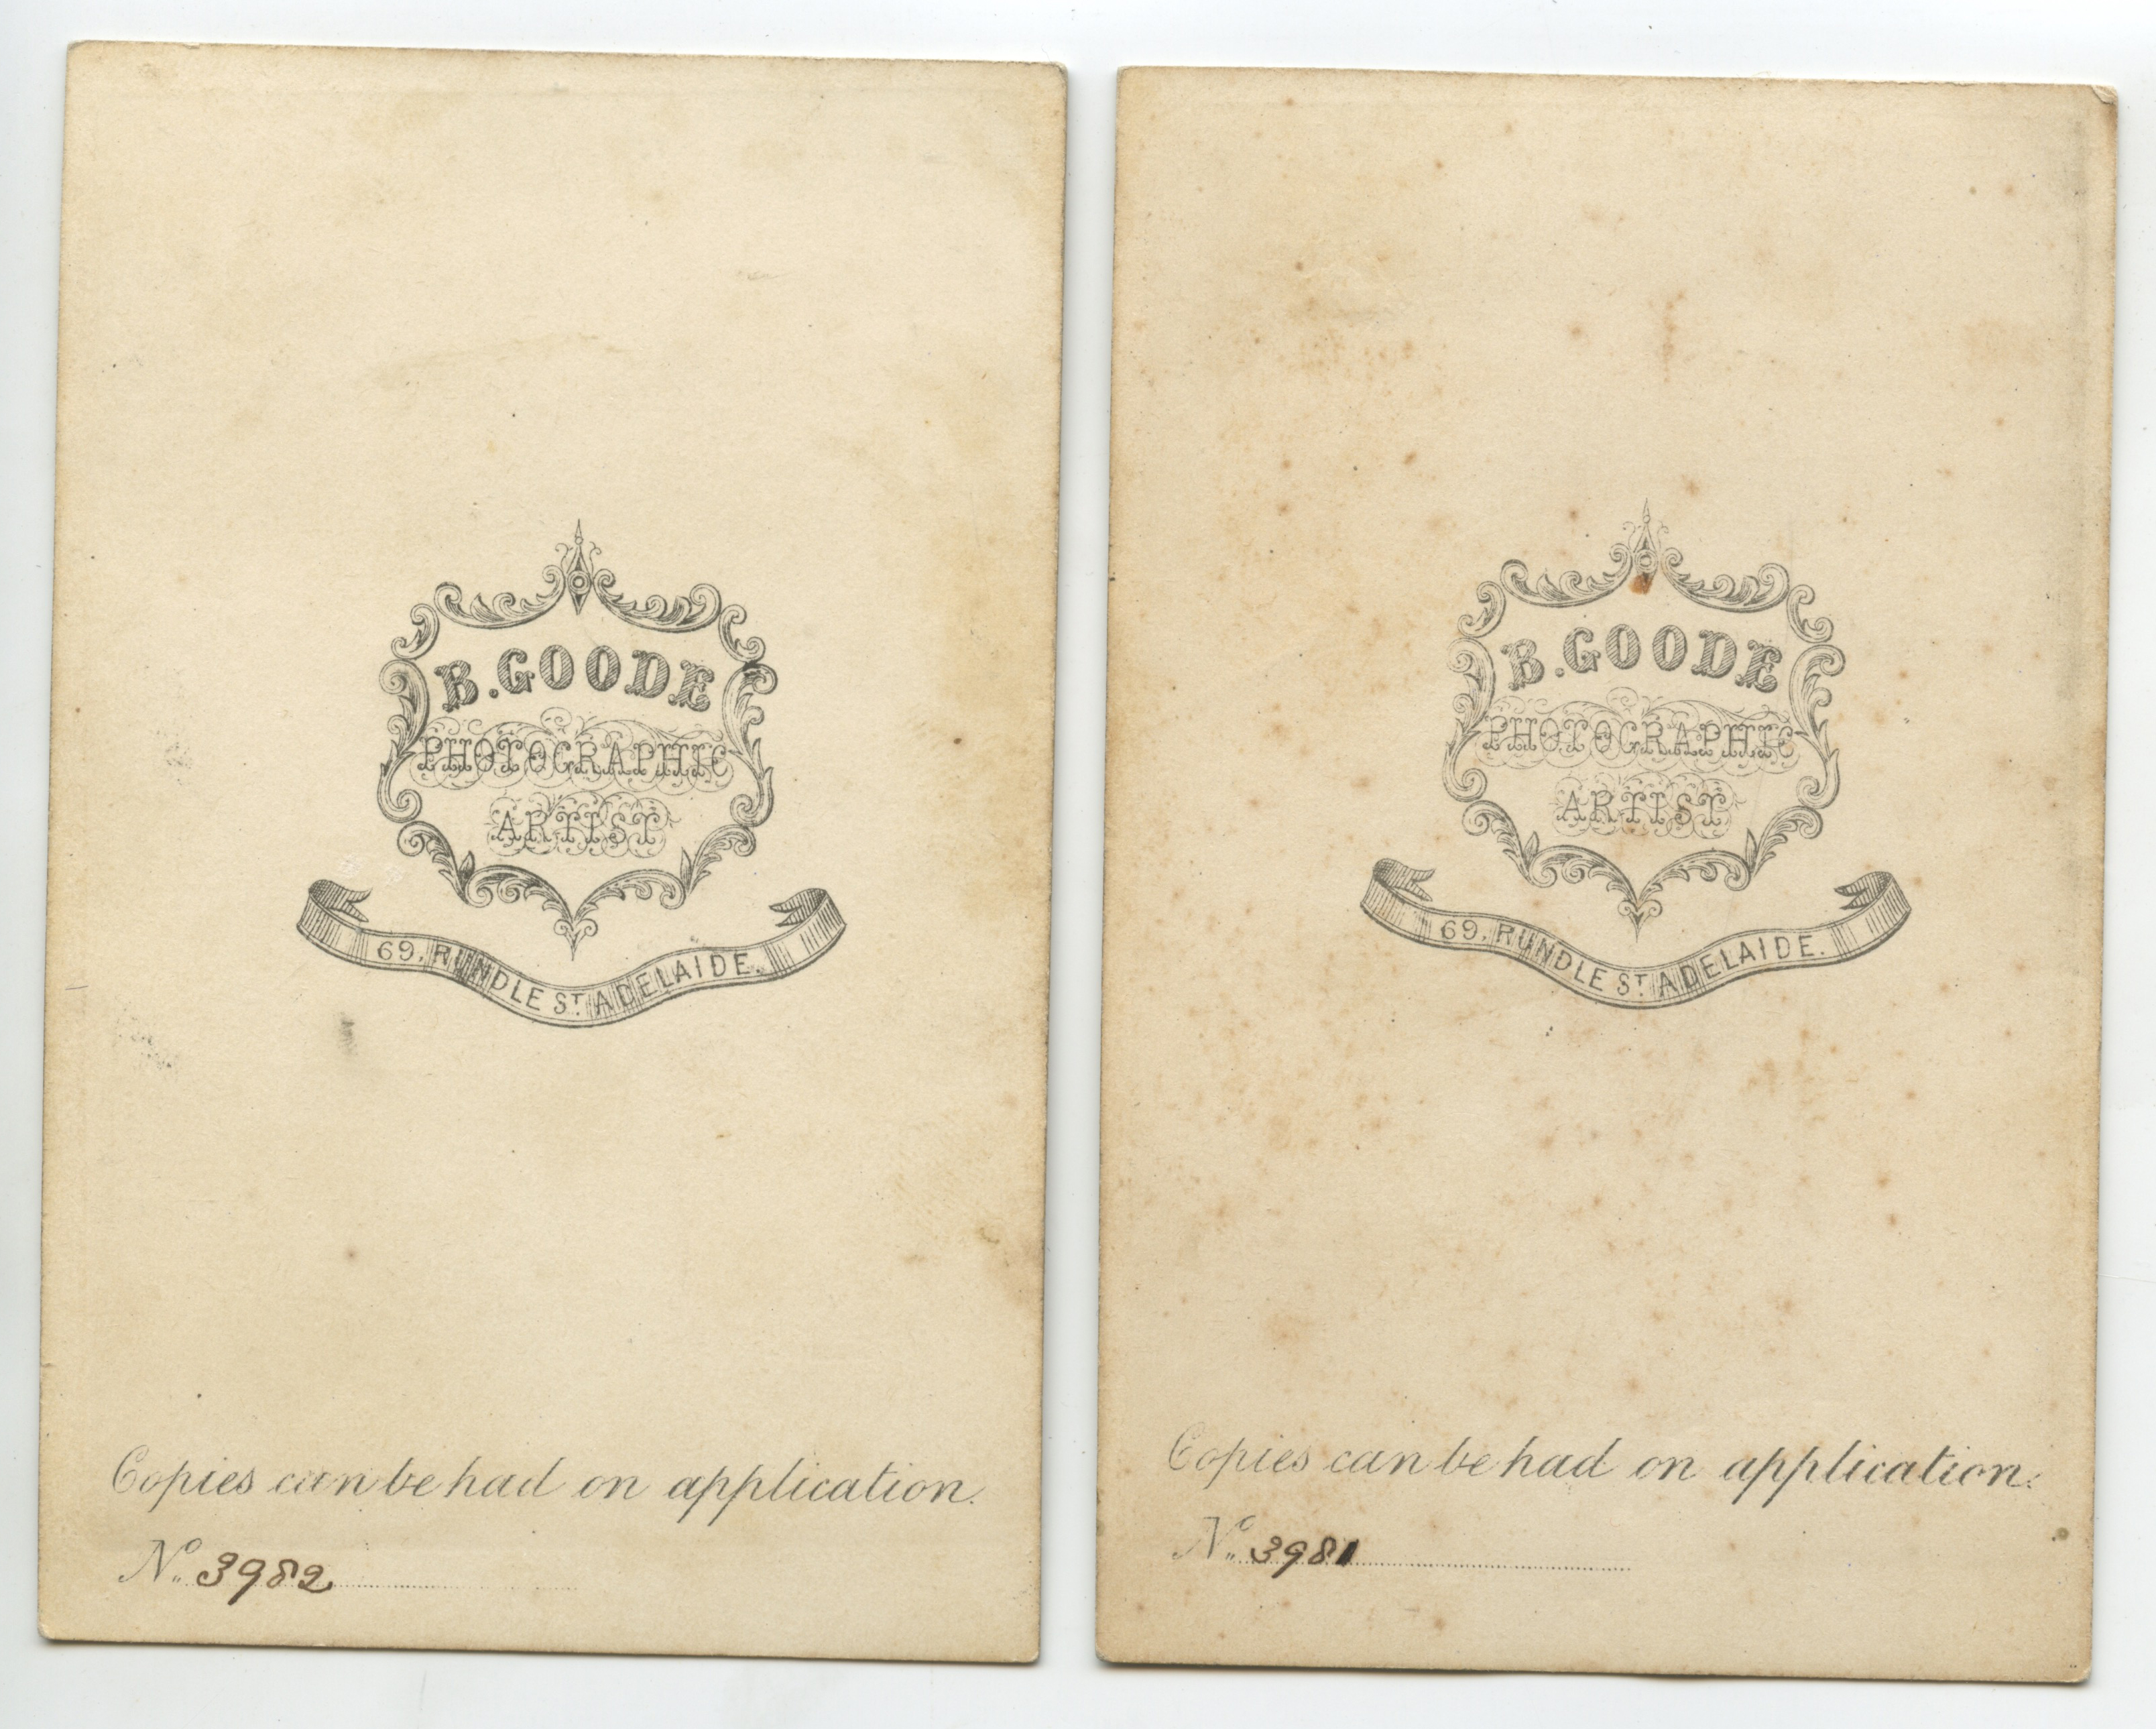 B. GOODE
PHOTOGRAPHIC
ARTIST
69, RUNDLE ST. ADELAIDE.
Copies can be had on application.
No. 3982
B. GOODE
PHOTOGRAPHIC
ARTIST
69, RUNDLE ST. ADELAIDE.
Copies can be had on application.
No. 3981